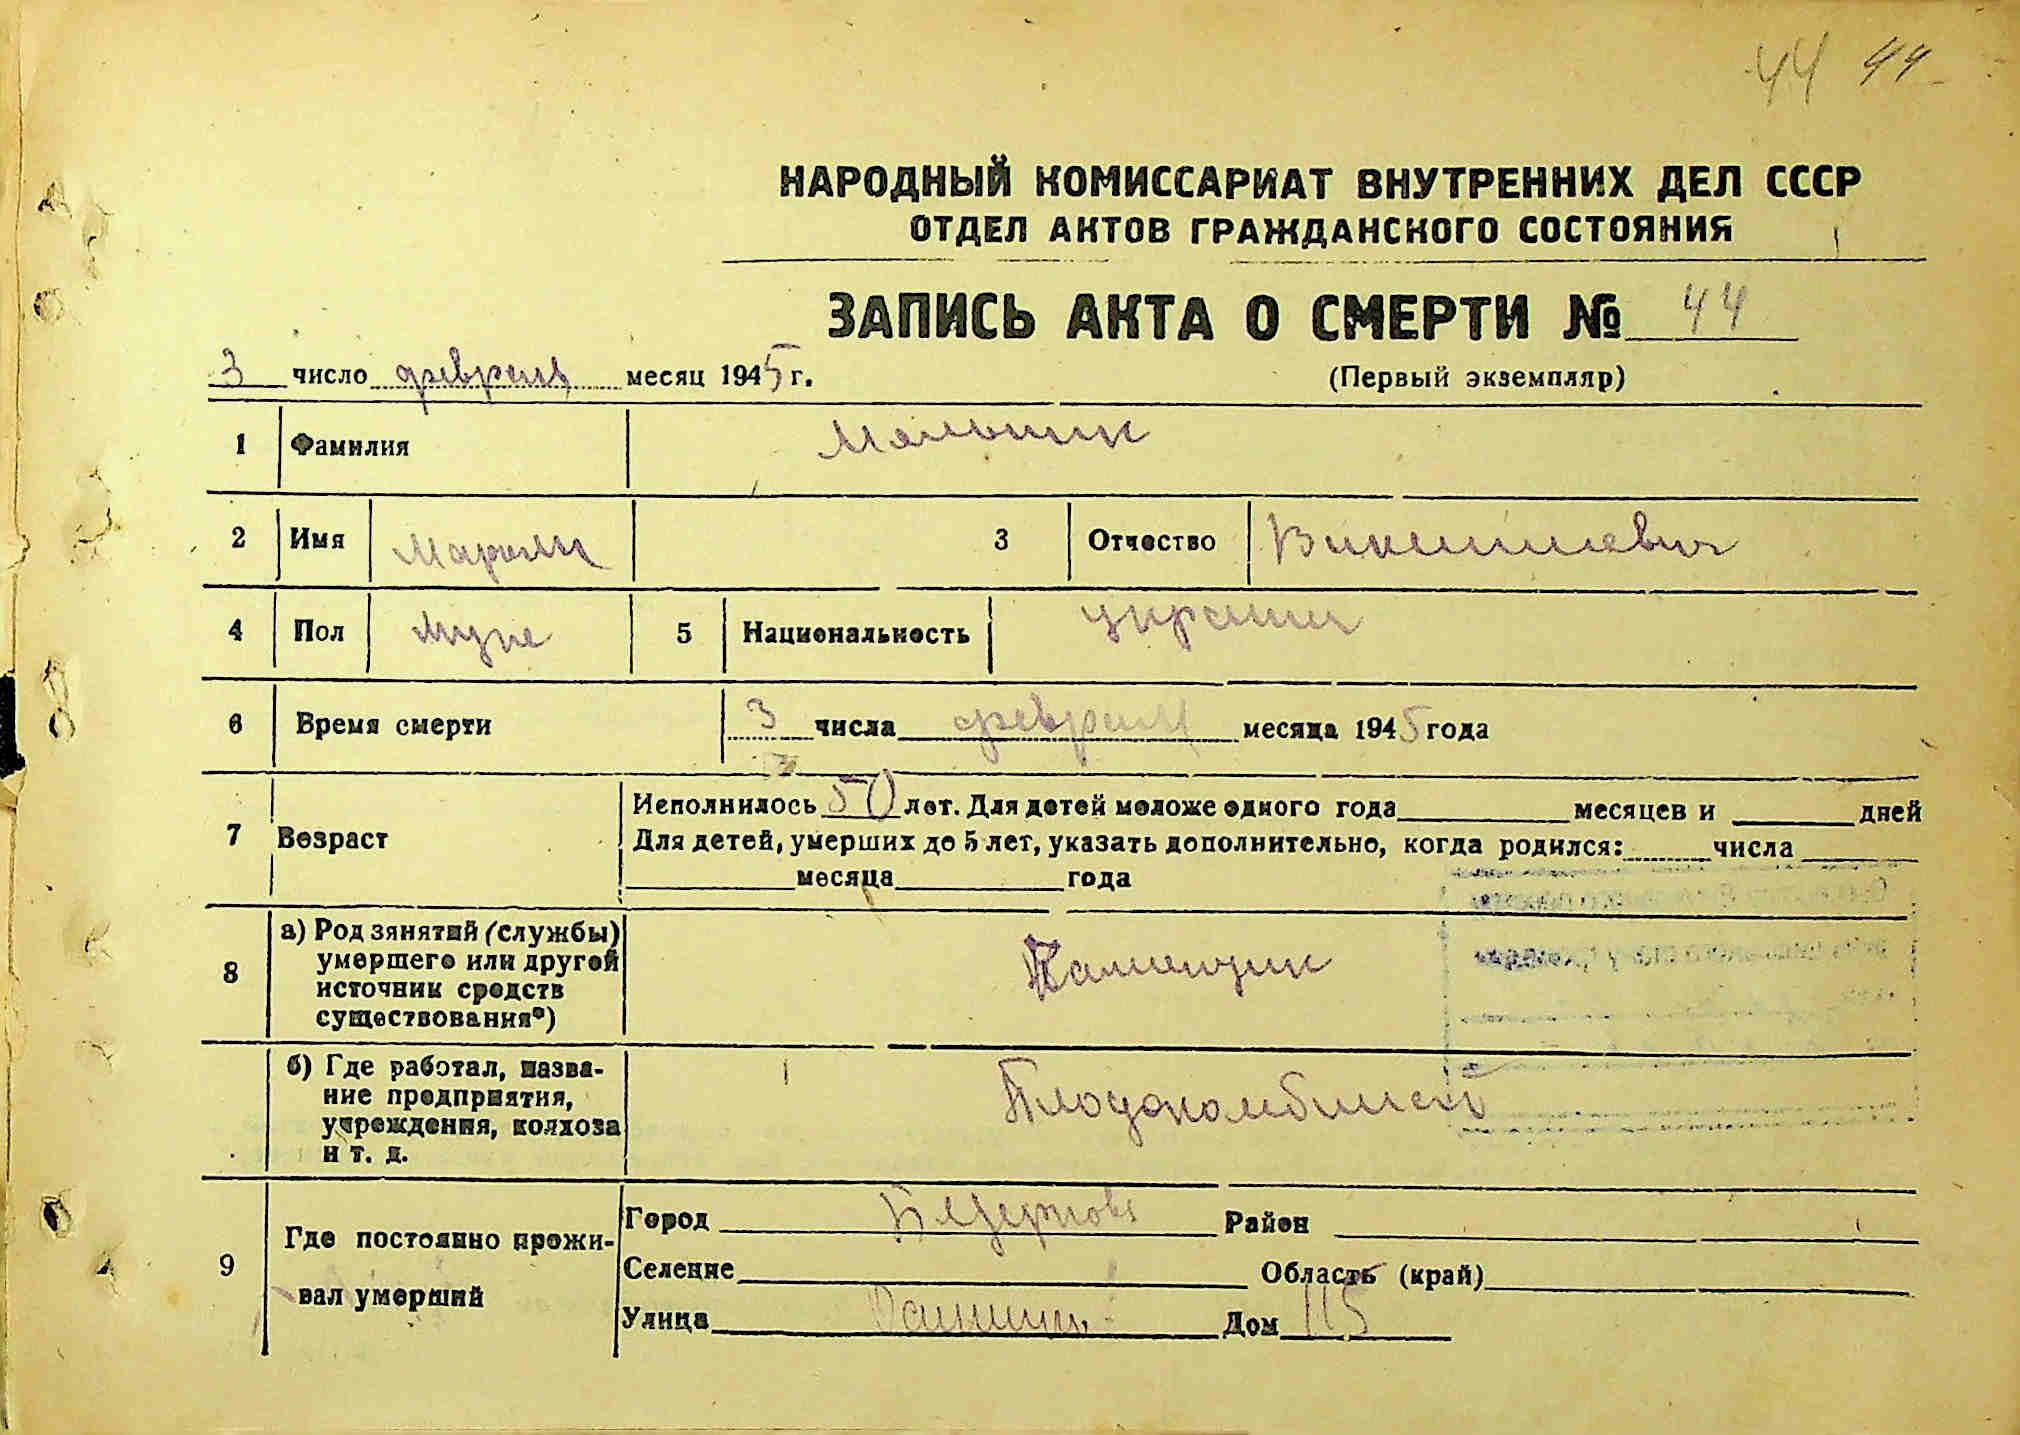 44 44
НАРОДНЫЙ КОМИССАРИАТ ВНУТРЕННИХ ДЕЛ СССР
ОТДЕЛ АКТОВ ГРАЖДАНСКОГО СОСТОЯНИЯ
ЗАПИСЬ АКТА О СМЕРТИ № 44
3 число февраля месяц 1945 г.
(Первый экземпляр)
1 Фамилия Мяльник
2 Имя 3 Отчество Викентиевич
4 Пол муж 5 Национальность украин
6 Время смерти 3 числа февраля месяца 1945 года
7 Возраст
Исполнилось 50 лет. Для детей моложе одного года месяцев и дней
Для детей, умерших до 5 лет, указать дополнительно, когда родился: числа
месяца года
8 а) Род занятий (службы) умершего или другой источник средств существования*)
б) Где работал, название предприятия, учреждения, колхоза и т. д.
Плодокомбинат
9 Где постоянно проживал умерший
Город Район
Селение Область (край)
Улица Дом 115